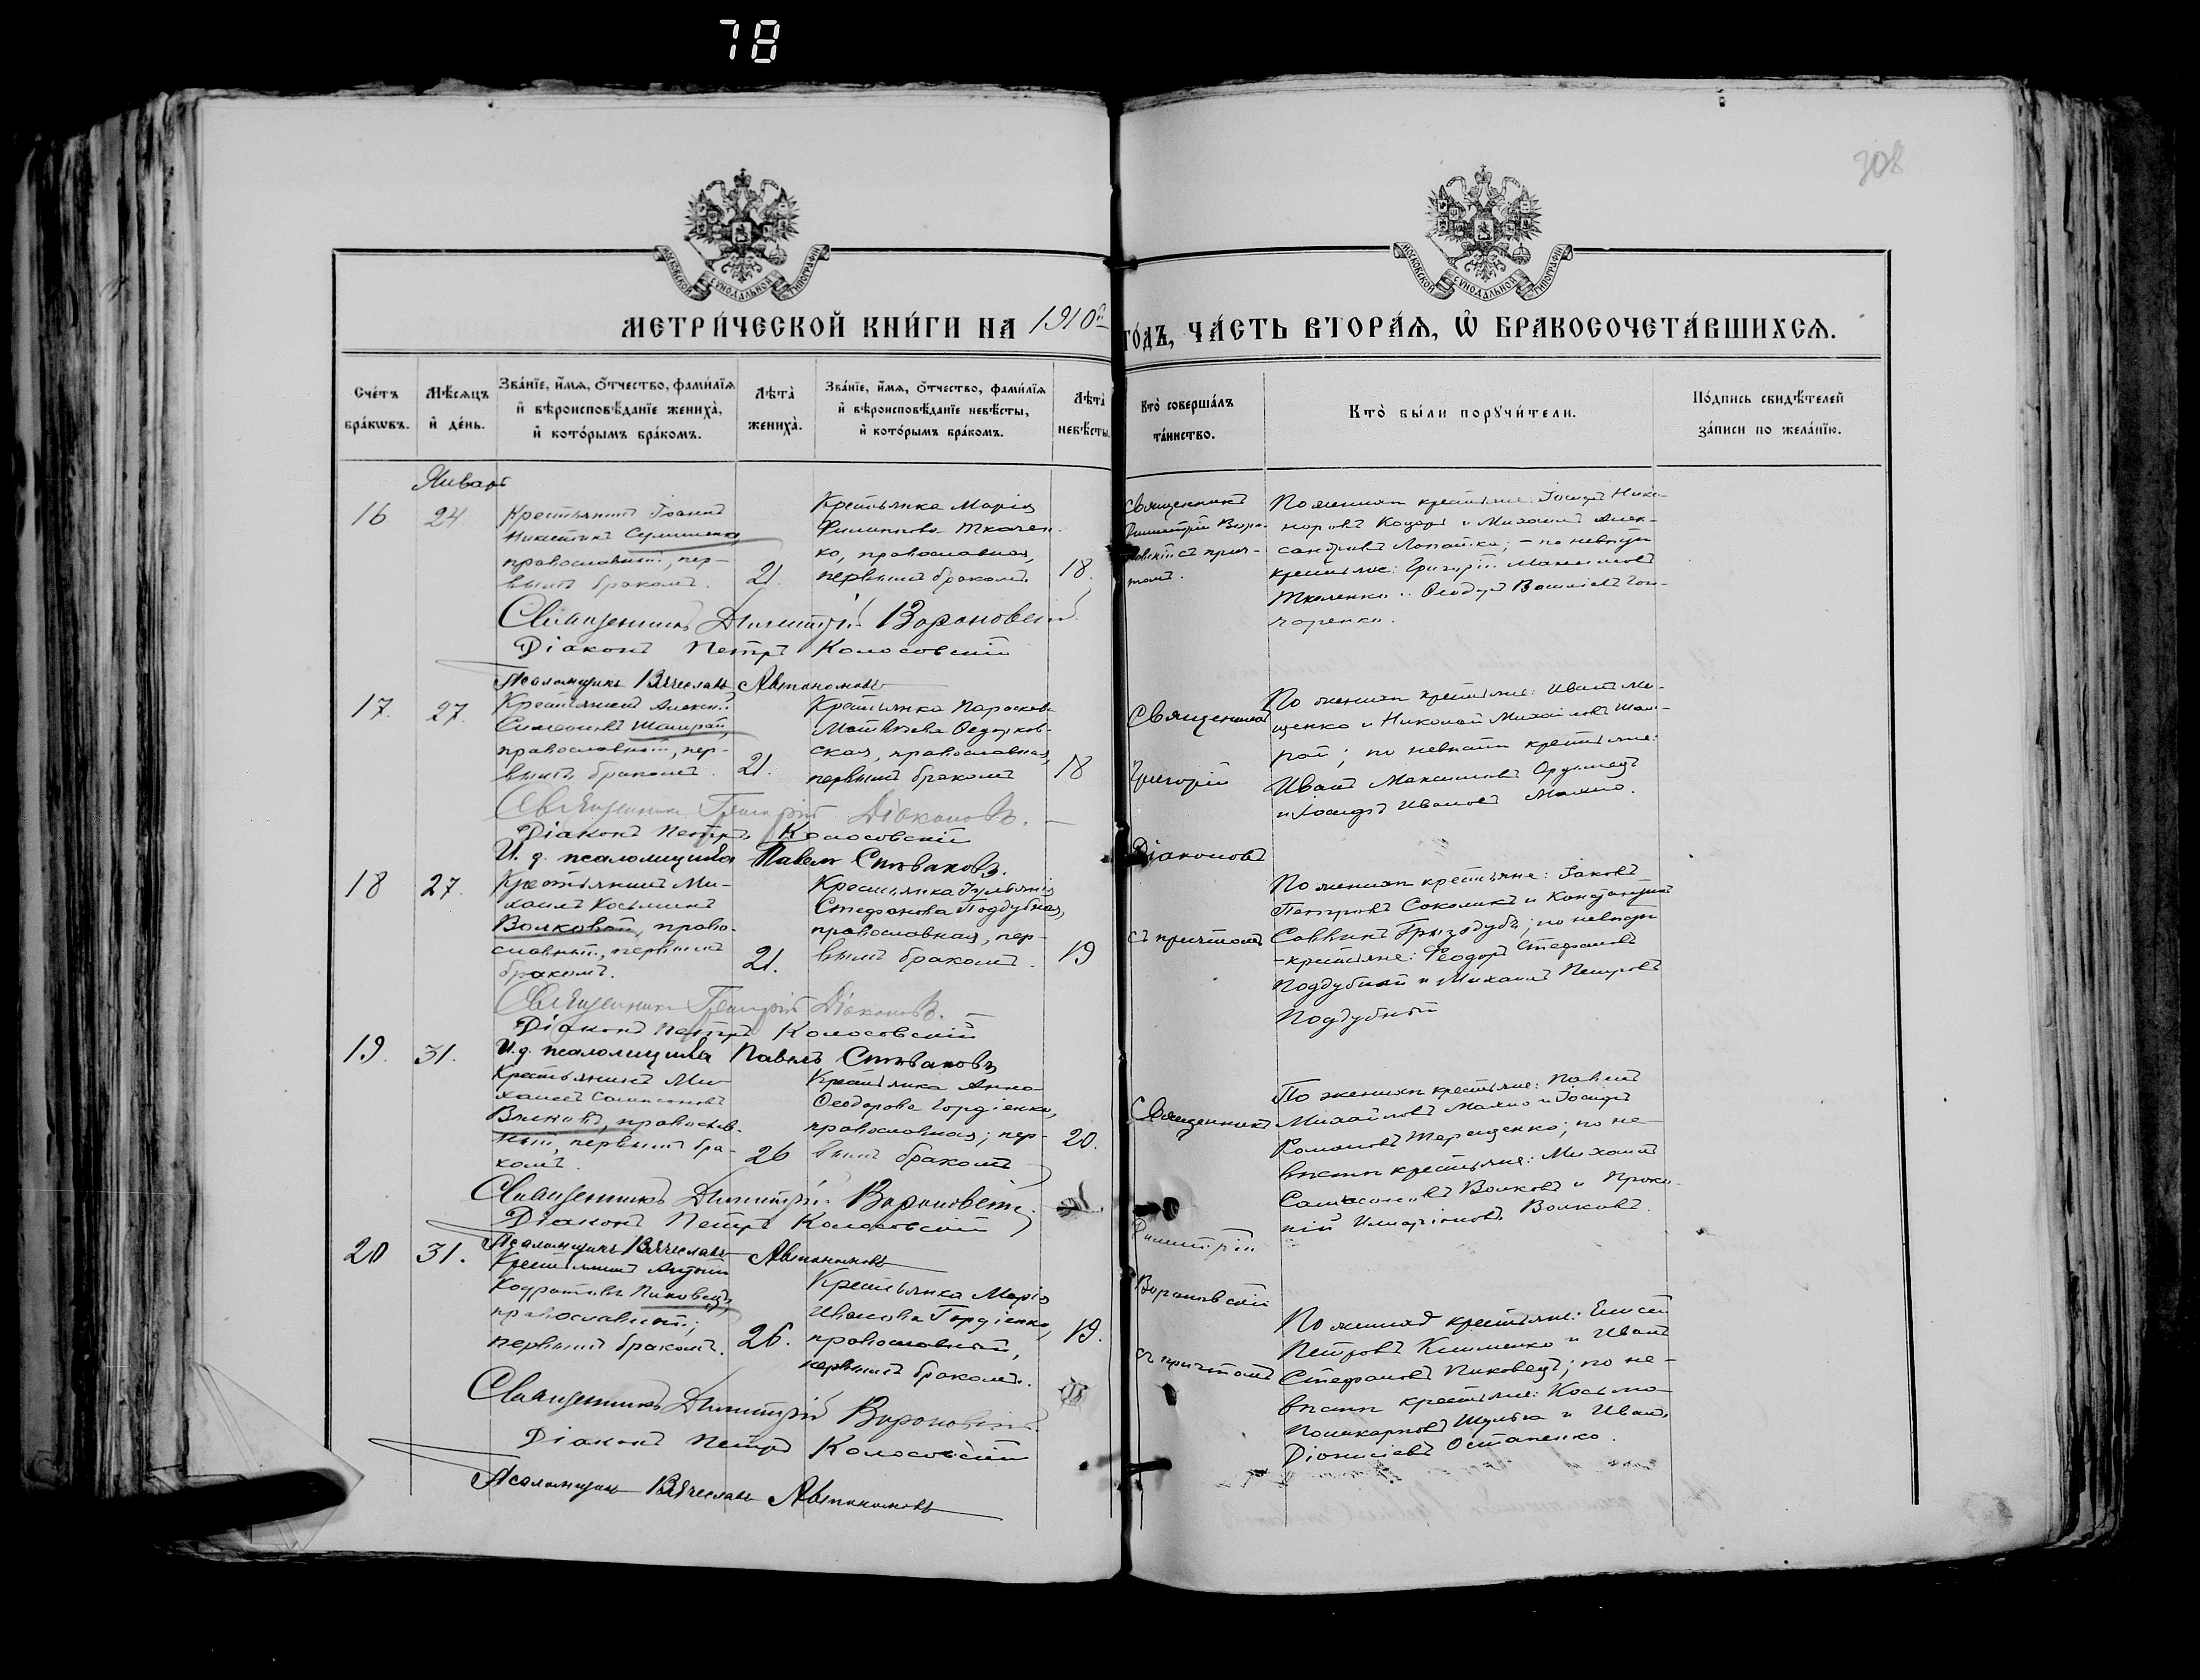 78
308
МОСКОВСКОЙ СУНОДАЛЬНОЙ ТИПОГРАФІИ
МОСКОВСКОЙ СУНОДАЛЬНОЙ ТИПОГРАФІИ
МЕТРИ́ЧЕСКОЙ КНИ́ГИ НА 1910й
ГО́ДЪ, ЧА́СТЬ ВТОРА́Я, Ѡ БРАКОСОЧЕТА́ВШИХСЯ.
Сче́тъ бра́кѡвъ.
Мѣ́сяцъ и҆ де́нь.
Зва́нїе, и҆́мя, ѻ҆́тчество, фами́лїя и҆ вѣроисповѣ́данїе жениха̀, и҆ кото́рымъ бра́комъ.
Лѣта̀ жениха̀.
Зва́нїе, и҆́мя, ѻ҆́тчество, фами́лїя и҆ вѣроисповѣ́данїе невѣ́сты, и҆ кото́рымъ бра́комъ.
Лѣта̀ невѣ́сты.
Кто̀ соверша́лъ та́инство.
Кто̀ бы́ли порꙋчи́тели.
По́дпись свидѣ́телей за́писи по жела́нїю.
Январь
16
24
Крестьянинъ Іоаннъ
Никитинъ
православный, пер-
вымъ бракомъ.
21.
Крестьянка Марія
Филиппова Ткачен-
ко, православная,
первымъ бракомъ.
18.
Священникъ
Димитрій Воро-
новскій съ прич-
томъ.
По женихѣ крестьяне: Іосифъ Ника-
норовъ Коцарь и Михаилъ Алек-
сандровъ Лопатка; - по невѣстѣ
крестьяне: Григорій Максимовъ
Ткаченко и Ѳеодоръ Василіевъ Гон-
чаренко.
Священникъ Димитрій Вороновскій
Діаконъ Петръ Колосовскій
Псаломщикъ Вячеславъ Автономовъ
17.
27.
Крестьянинъ Алексій
Симеоновъ Шамрай,
православный, пер-
вымъ бракомъ.
21.
Крестьянка Параскева
Матвѣева Ѳедорков-
ская, православная,
первымъ бракомъ
18
Священникъ
Григорій
Діаконовъ
съ причтомъ
По женихѣ крестьяне: Иванъ Ми-
щенко и Николай Михайловъ Шам-
рай; по невѣстѣ крестьяне:
Иванъ Максимовъ
и Іосифъ Ивановъ Махно.
Священникъ Григорій Діаконовъ.
Діаконъ Петръ Колосовскій
И. д. псаломщика Павелъ Спѣваковъ.
18
27.
Крестьянинъ Ми-
хаилъ Косьминъ
Волковой, право-
славный, первымъ
бракомъ.
21.
Крестьянка Іуліанія
Стефанова Поддубная,
православная, пер-
вымъ бракомъ.
19
По женихѣ крестьяне: Іаковъ
Петровъ Соколикъ и Константинъ
Саввинъ Грызодубъ; по невѣстѣ
-крестьяне: Ѳеодоръ Стефановъ
Поддубный и Михаилъ Петровъ
Поддубный
Священникъ Григорій Діаконовъ.
Діаконъ Петръ Колосовскій
И. д. псаломщика Павелъ Спѣваковъ
19.
31.
Крестьянинъ Ми-
хаилъ Сампсоновъ
православ-
ный, первымъ бра-
комъ.
26
Крестьянка Анна
Ѳеодорова Гордіенко,
православная; пер-
вымъ бракомъ
20.
Священникъ
Димитрій
Вороновскій
съ причтомъ
По женихѣ крестьяне: Павелъ
Михайловъ Махно и Іосифъ
Романовъ Терещенко; по не-
вѣстѣ крестьяне: Михаилъ
Сампсоновъ Волковъ и Проко-
пій Иларіоновъ Волковъ.
Священникъ Димитрій Вороновскій
Діаконъ Петръ Колосовскій
Псаломщикъ Вячеславъ Автономовъ
20
31.
Крестьянинъ
Кодратовъ Пиковецъ,
православный;
первымъ бракомъ.
26.
Крестьянка Марія
Иванова Гордіенко,
православный,
первымъ бракомъ.
19.
По женихѣ крестьяне: Елисей
Петровъ Клименко и Иванъ
Стефановъ Пиковецъ; по не-
вѣстѣ крестьяне: Косьма
Поликарповъ Шульга и Иванъ
Діонисіевъ Остапенко.
Священникъ Димитрій Вороновскій
Діаконъ Петръ Колосовскій
Псаломщикъ Вячеславъ Автономовъ